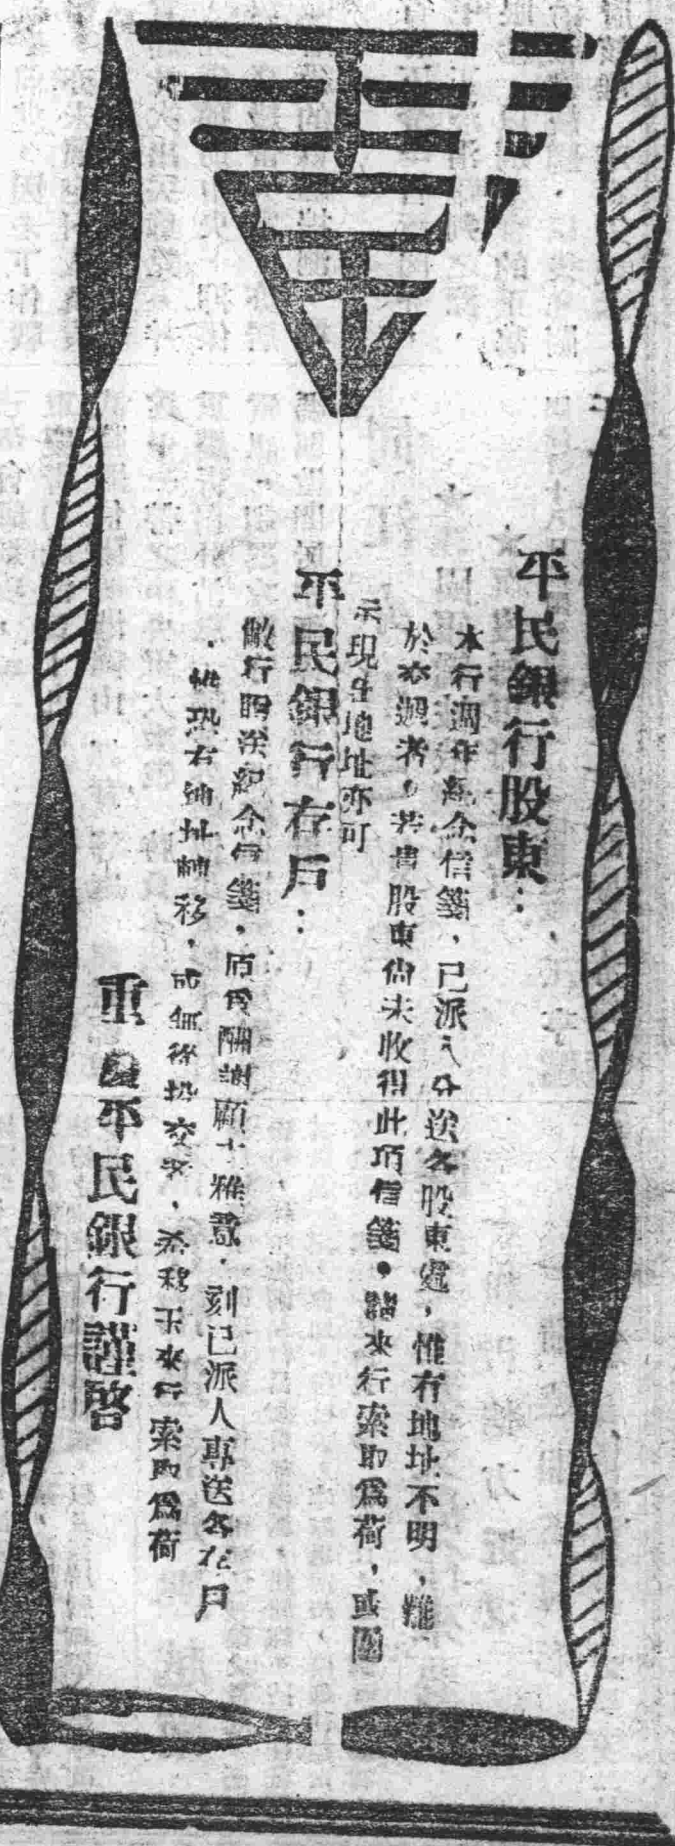 平民銀行股東：
本行週年紀念信箋，已派人分送各股東處，惟有地址不明，難
於交遞者，若貴股東尚未收得此項信箋，請來行索取爲荷，或
示現在地址亦可
平民銀行存戶：
敝行贈送紀念信箋，原爲酬謝顧主雅意，刻已派人專送各存戶
，惟恐有地址轉移，或無從投交者，希移玉來行索取爲荷
重慶平民銀行謹啓